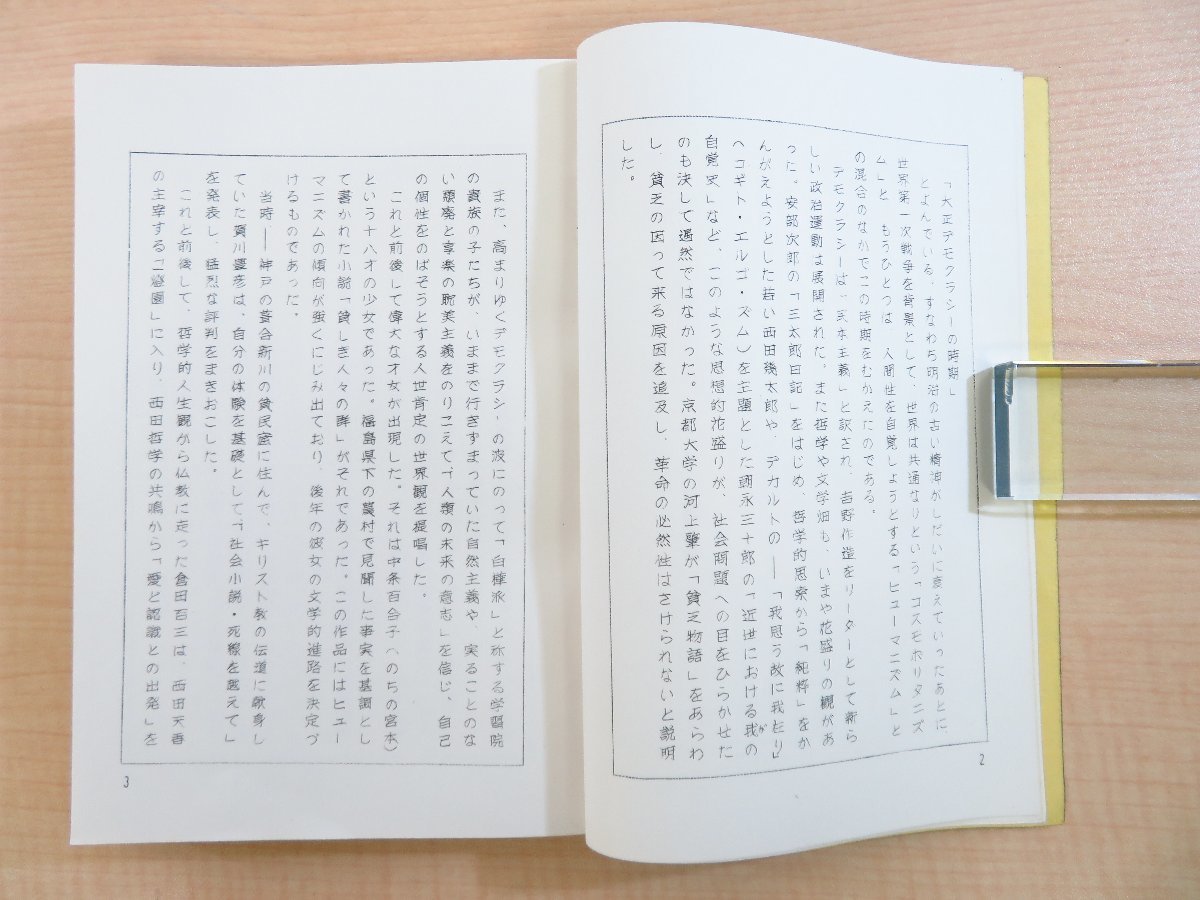 「大正デモクラシーの時期」
とよんでいる。すなわち明治の古い精神がしだいに衰えていったあとに
世界第一次戦争を背景として、世界は共通なりという「コスモポリタニズ
ム」と、もうひとつは、人間性を自覚しようとする「ヒューマニズム」と
の混合のなかでこの時期をむかえたのである。
デモクラシーは、「民本主義」と訳され、吉野作造をリーターとして新ら
しい政治運動は展開された。また哲学や文学畑も、いまや花盛りの観があ
った。安部次郎の「三太郎日記」をはじめ、哲学的思索から「純粋」をか
んがえようとした若い西田幾太郎や、デカルトの——「我思う故に我在り」
(コギト・エルゴ・ズム)を主題とした朝永三十郎の「近世における我(が)の
自覚史」など、このような思想的花盛りが、社会問題への目をひらかせた
のも決して遇然ではなかった。京都大学の河上肇が「貧乏物語」をあらわ
し、貧乏の因って来る原因を追及し、革命の必然性はさけられないと説明
した。
2
また、高まりゆくデモクラシーの波にのって「白樺派」と称する学習院
の貴族の子たちが、いままで行きずまっていた自然主義や、実ることのな
い頽廃と享楽の耽美主義をのりこえて、「人類の未来の意志」を信じ、自己
の個性をのばそうとする人世肯定の世界観を提唱した。
これと前後して偉大な才女が出現した。それは中条百合子(のちの宮本)
という十八才の少女であった。福島県下の農村で見聞した事実を基調とし
て書かれた小説「貧しき人々の群」がそれであった。この作品にはヒュー
マニズムの傾向が強くにじみ出ており、後年の彼女の文学的進路を決定づ
けるものであった。
当時——神戸の葺合新川の貧民窟に住んで、キリスト教の伝道に献身し
ていた賀川豊彦は、自分の体験を基礎として、「社会小説・死線を越えて」
を発表し、猛烈な評判をまきおこした。
これと前後して、哲学的人生観から仏教に走った倉田百三は、西田天香
の主宰する「一燈園」に入り、西田哲学の共鳴から「愛と認識との出発」を
3